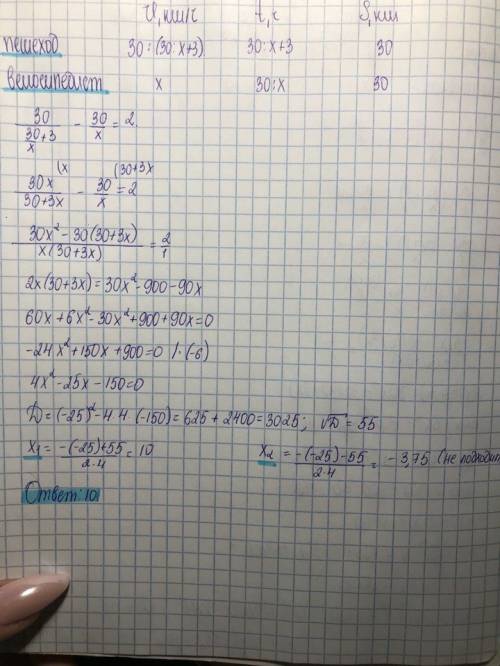 V, км/ч t, ч S, км
пешеход 30:(30:x+3) 30:x+3 30
велосипедист x 30:x 30
30/(30/x+3) - 30/x = 2
(x (30+3x
30x/(30+3x) - 30/x = 2
(30x²-30(30+3x))/(x(30+3x)) = 2/1
2x(30+3x)=30x²-900-90x
60x+6x²-30x²+900+90x=0
-24x²+150x+900=0 /·(-6)
4x²-25x-150=0
D=(-25)²-4·4·(-150)=625+2400=3025; √D=55
x₁=(-(-25)+55)/(2·4)=10 x₂=(-(-25)-55)/(2·4)=-3,75 (не подходит
Ответ: 10